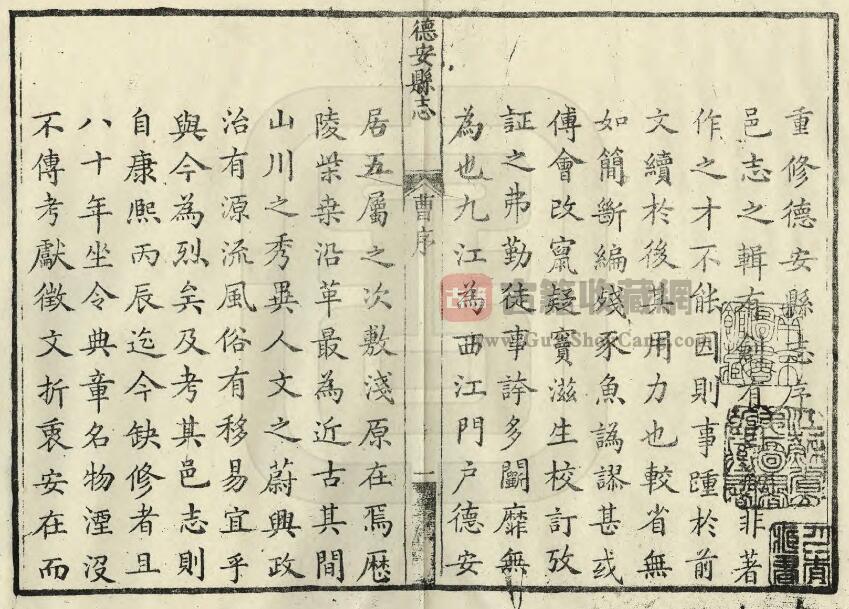 重修德安縣志序
邑志之輯有創有非著
作之才不能因則事踵於前
文續於後其用力也較省無
如簡斷編殘豕魚譌謬甚或
傅會改竄疑竇滋生校訂攷
証之弗勤徒事誇多鬬靡無
為也九江為西江門户德安
德安縣志
曹序
一
居五屬之次敷淺原在焉歷
陵柴桑沿革最為近古其間
山川之秀異人文之蔚興政
治有源流風俗有移易宜乎
與今為烈矣及考其邑志則
自康熙丙辰迄今缺修者且
八十年坐令典章名物湮沒
不傳考獻徵文折衷安在而
古籍收藏網
www.GujiShouCang.com